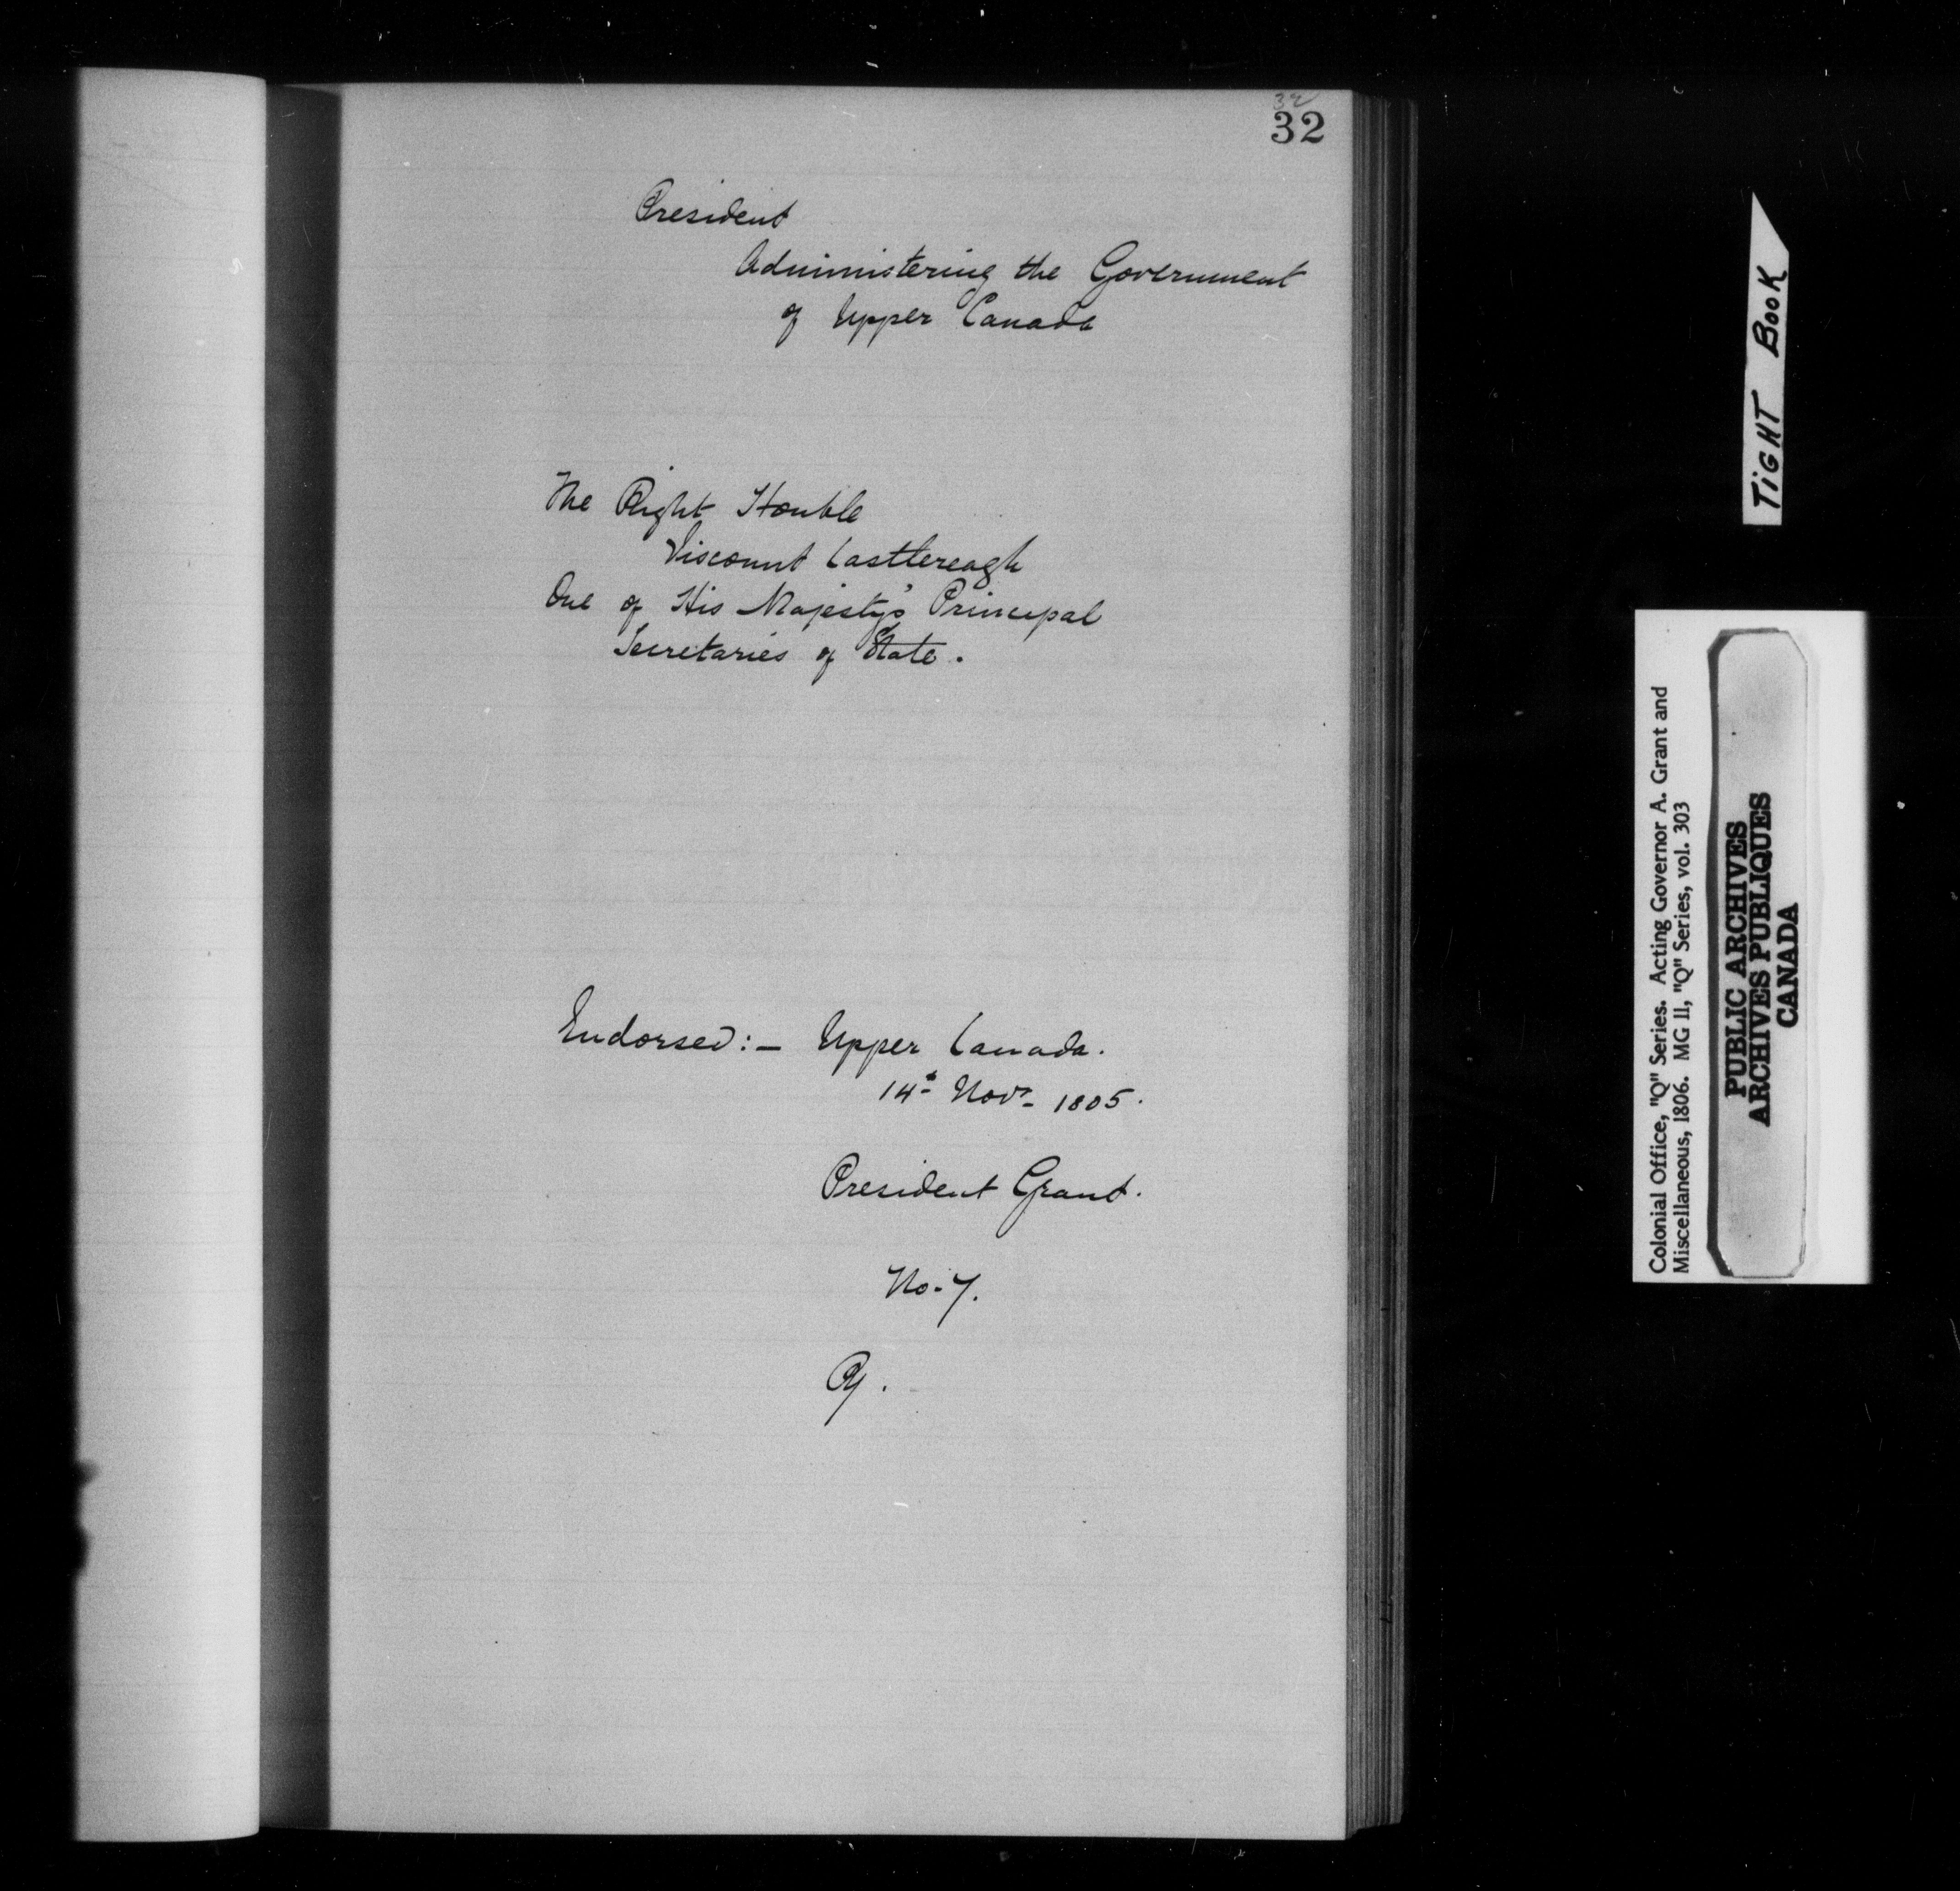 32
32
President
Administering the Government
of Upper Canada
The Right Honble
Viscount Castlereagh
One of His Majesty's Principal
Secretaries of State.
Endorsed:— Upper Canada.
14th Novr 1805.
President Grant.
No. 7.
TiGHT BOOK
Colonial Office, "Q" Series. Acting Governor A. Grant and
Miscellaneous, 1806. MG 11, "Q" Series, vol. 303
PUBLIC ARCHIVES
ARCHIVES PUBLIQUES
CANADA